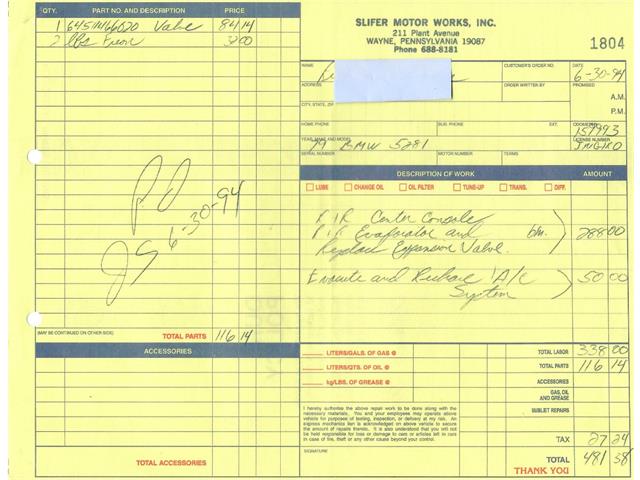 SLIFER MOTOR WORKS, INC.
211 Plant Avenue
WAYNE, PENNSYLVANIA 19087
Phone 688-8181
1804
QTY. PART NO. AND DESCRIPTION PRICE
1 64511466020 Valve 84 14
2 lbs Freon 32 00
NAME CUSTOMER'S ORDER NO. DATE
6-30-94
ADDRESS ORDER WRITTEN BY PROMISED
A.M.
P.M.
CITY, STATE, ZIP
HOME PHONE BUS. PHONE EXT. ODOMETER
157993
YEAR, MAKE AND MODEL LICENSE NUMBER
79 BMW 528I
SERIAL NUMBER MOTOR NUMBER TERMS
DESCRIPTION OF WORK AMOUNT
LUBE CHANGE OIL OIL FILTER TUNE-UP TRANS. DIFF.
R&R Center Console
R&R Evaporator and 288 00
Replace Expansion Valve.
Evacuate and Recharge A/C 50 00
System
PD
6-30-94
JS
(MAY BE CONTINUED ON OTHER SIDE) TOTAL PARTS 116 14
ACCESSORIES
TOTAL ACCESSORIES
LITERS/GALS. OF GAS @ TOTAL LABOR 338 00
LITERS/QTS. OF OIL @ TOTAL PARTS 116 14
kg/LBS. OF GREASE @ ACCESSORIES
GAS, OIL AND GREASE
SUBLET REPAIRS
I hereby authorize the above repair work to be done along with the
necessary materials. You and your employees may operate above
vehicle for purposes of testing, inspection, or delivery at my risk. An
express mechanics lien is acknowledged on above vehicle to secure
the amount of repairs thereto. It is also understood that you will not
be held responsible for loss or damage to cars or articles left in cars
in case of fire, theft or any other cause beyond your control.
TAX 27 24
SIGNATURE
TOTAL 481 38
THANK YOU